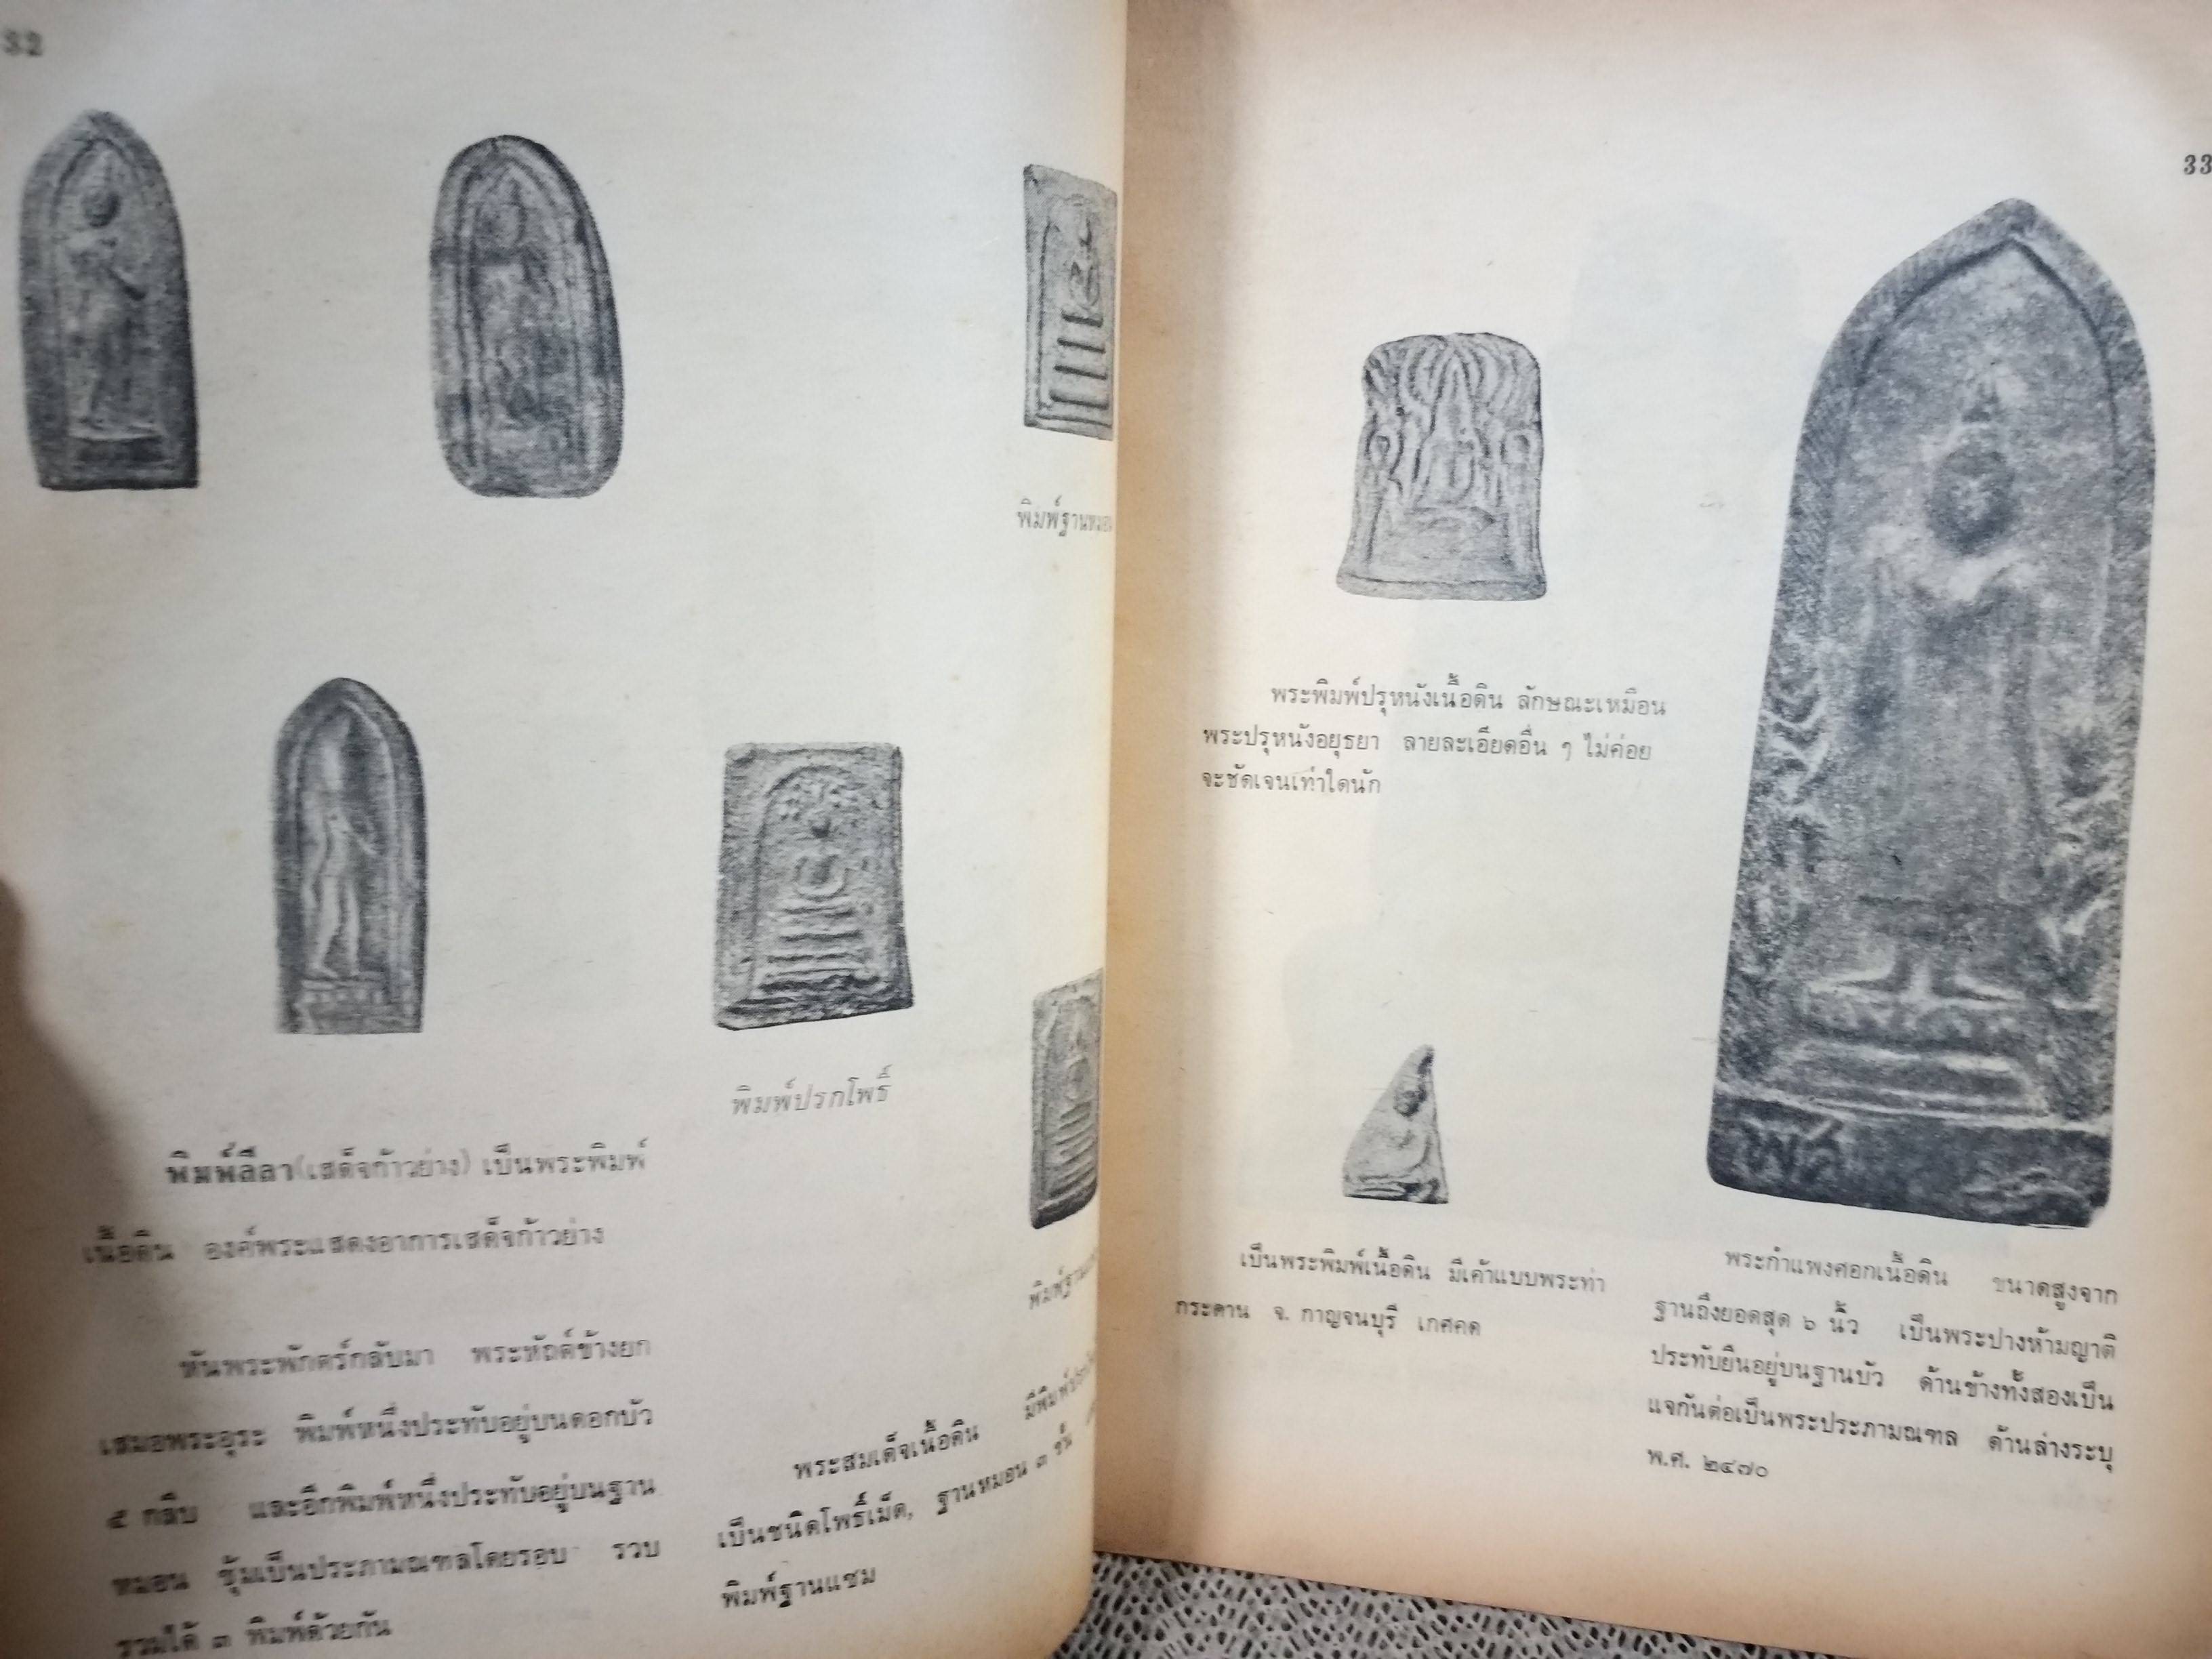 32
พิมพ์ปรกโพธิ์
พิมพ์ลีลา(เสด็จก้าวย่าง) เป็นพระพิมพ์
เนื้อดิน องค์พระแสดงอาการเสด็จก้าวย่าง
หันพระพักตร์กลับมา พระหัตถ์ข้างยก
เสมอพระอุระ พิมพ์หนึ่งประทับอยู่บนดอกบัว
๕ กลีบ และอีกพิมพ์หนึ่งประทับอยู่บนฐาน
หมอน ซุ้มเป็นประภามณฑลโดยรอบ รวบ
รวมได้ ๓ พิมพ์ด้วยกัน
พิมพ์ฐานหมอน
พระสมเด็จเนื้อดิน
เป็นชนิดโพธิ์เม็ด, ฐานหมอน ๓ ชั้น
พิมพ์ฐานแซม
33
พระพิมพ์ปรุหนังเนื้อดิน ลักษณะเหมือน
พระปรุหนังอยุธยา ลายละเอียดอื่น ๆ ไม่ค่อย
จะชัดเจนเท่าใดนัก
พศ
เป็นพระพิมพ์เนื้อดิน มีเค้าแบบพระท่า
กระดาน จ. กาญจนบุรี เกศคด
พระกำแพงศอกเนื้อดิน ขนาดสูงจาก
ฐานถึงยอดสุด ๖ นิ้ว เป็นพระปางห้ามญาติ
ประทับยืนอยู่บนฐานบัว ด้านข้างทั้งสองเป็น
แจกันต่อเป็นพระประภามณฑล ด้านล่างระบุ
พ.ศ. ๒๔๗๐